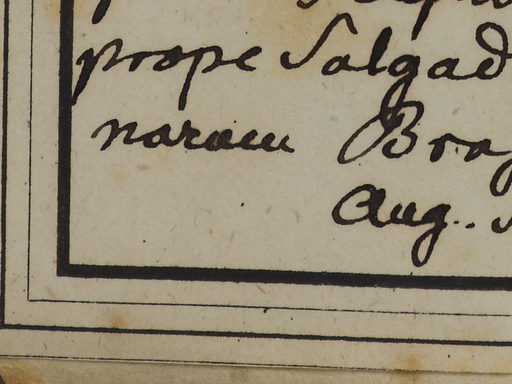 prope Salgad
naram Bra
Aug..